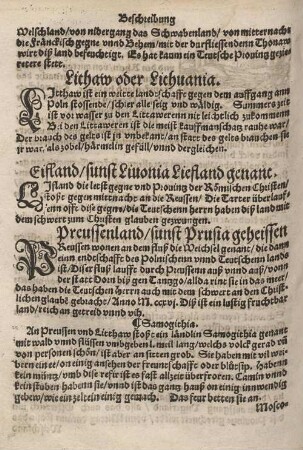 Beschreibung
Welschland/von nidergang das Schwabenland/von mitternacht
die Fränckisch gegne vnd Behem/mit der durfliessenden Thonaw
wirt diß land befeuchtigt. Es hat kaum ein Teutsche Prouintz gezie-
retere stett.
Lithaw oder Lithuania.
LIthaw ist ein weite landtschafft gegen dem auffgang ann
Poln stossende/schier alle seig vnd wäldig. Summers zeit
ist vor wasser zu den Littaweren nit leichtlich zukommenn
Bei den Littaweren ist die meist kauffmanschatz rauhe war/
Der brauch des gelts ist jn vnbekant/an statt des gelts brauchen sie
jr war/als zobel/härmelin gefüll/vnnd dergleichen.
Eifland/sunst Liuonia Liefland genant.
LIfland die letst gegne vnd Prouintz der Römischen Christen/
stoßt gegen mitternacht an die Reussen/ Die Tarter überlauf-
fenn offt dise gegne/die Teutschenn herren haben diß land mit
dem schwert zum Christen glauben gezwungen.
Preussenland/sunst Prusia geheissen
PReussen wonen an dem fluß die Weichsel genant/die dann
einn endeschafft des Polnischenn vnnd Teutschenn lands
ist/Diser fluß laufft durch Preussenn auß vnnd auß/vonn
der statt Dorn biß gen Tantzgo/alda rint sie in das meer/
das haben die Teutschen herrn auch mit dem schwert an den Christ-
lichen glaubē gebracht/ Anno M. ccxvi. Diß ist ein lustig fruchtbar
land/reich an getreid vnnd vich.
¶ Samogithia.
An Preussen vnd Litthaw stoßt ein ländlin Samogithia genant
mit wald vnnd flüssen vmbgeben l. meil lang/welchs volck gerad vñ
von personen schön/ist aber an sitten grob. Sie haben mit vil wei-
bern ein ee/on einig ansehen der freuntschafft oder blutsip. Habenn
kein müntz/vmb dise refir ist es fast allzeit überfroren. Camin vnnd
kein stuben habenn sie/vnnd ist das gantz hauß on einig innwendig
gebew/wie ein zelt ein einig gemach. Das feur betten sie an.
Mosco-